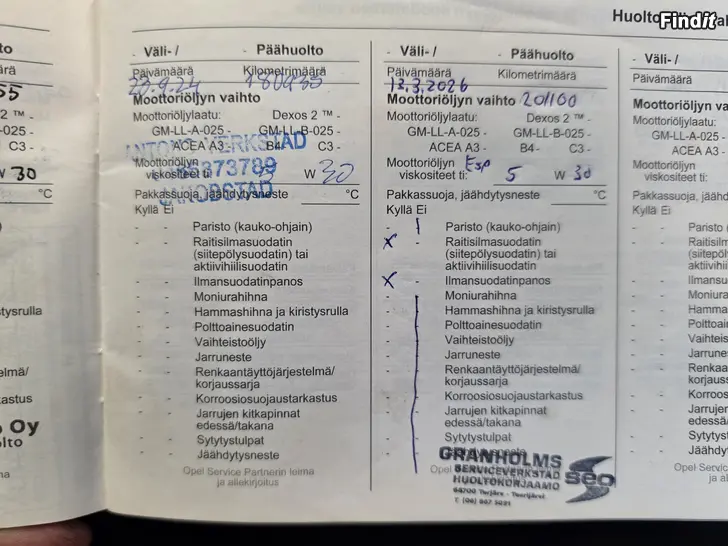 Huolto
Findit
to
ärä
55
2 ™ -
-025 -
C3 -
W 30
°C
n)
tysrulla
elmä/
kastus
o Oy
olto
- Väli- /
- Päähuolto
Päivämäärä
Kilometrimäärä
23.9.24
Moottoriöljyn vaihto
Moottoriöljylaatu:
Dexos 2 ™ -
GM-LL-A-025 -
GM-LL-B-025 -
ACEA A3 -
B4 -
C3 -
VERKSTAD
373789
JAKOBSTAD
Moottoriöljyn
viskositeet ti:
W 30
Pakkassuoja, jäähdytysneste
°C
Kyllä Ei
- - Paristo (kauko-ohjain)
- - Raitisilmasuodatin
(siitepölysuodatin) tai
aktiivihiilisuodatin
- - Ilmansuodatinpanos
- - Moniurahihna
- - Hammashihna ja kiristysrulla
- - Polttoainesuodatin
- - Vaihteistoöljy
- - Jarruneste
- - Renkaantäyttöjärjestelmä/
korjaussarja
- - Korroosiosuojaustarkastus
- - Jarrujen kitkapinnat
edessä/takana
- - Sytytystulpat
- - Jäähdytysneste
Opel Service Partnerin leima
ja allekirjoitus
- Väli- /
- Päähuolto
Päivämäärä
Kilometrimäärä
13.3.2026
Moottoriöljyn vaihto 201100
Moottoriöljylaatu:
Dexos 2 ™ -
GM-LL-A-025 -
GM-LL-B-025 -
ACEA A3 -
B4 -
C3 -
Moottoriöljyn Esp
viskositeet ti: 5 W 30
Pakkassuoja, jäähdytysneste
°C
Kyllä Ei
- Paristo (kauko-ohjain)
x - Raitisilmasuodatin
(siitepölysuodatin) tai
aktiivihiilisuodatin
x - Ilmansuodatinpanos
- Moniurahihna
- Hammashihna ja kiristysrulla
- Polttoainesuodatin
- Vaihteistoöljy
- Jarruneste
- Renkaantäyttöjärjestelmä/
korjaussarja
- Korroosiosuojaustarkastus
- Jarrujen kitkapinnat
edessä/takana
- Sytytystulpat
GRANHOLMS
SERVICEVERKSTAD
HUOLTOKORJAAMO
68700 Terjärv - Teerijärvi
Seo
- Väli- /
Päivämäärä
Moottoriöljyn
Moottoriöljylaatu:
GM-LL-A-025
ACEA A3
Moottoriöljyn
viskositeet ti:
Pakkassuoja, jä
Kyllä Ei
- - Paristo (k
- - Raitisilma
(siitepöly
aktiivihiili
- - Ilmansuo
- - Moniura
- - Hamma
- - Polttoai
- - Vaihteis
- - Jarrune
- - Renkaa
korjaus
- - Korroo
- - Jarruje
edess
- - Sytyty
- - Jäähd
Opel Se
ja